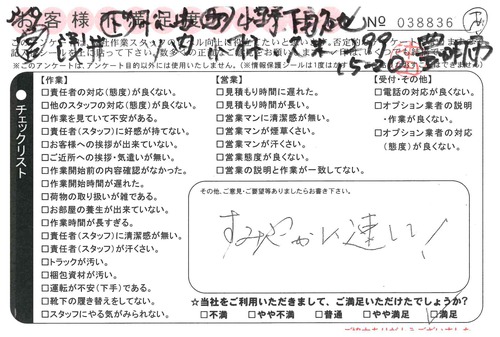 お客様不満足度
No 038836
このアンケートは
※このアンケートは、アンケート目的以外には使用いたしません。
チェックリスト
【作業】
□責任者の対応(態度)が良くない。
□他のスタッフの対応(態度)が良くない。
□作業を見ていて不安がある。
□責任者(スタッフ)に好感が持てない。
□お客様への挨拶が出来ていない。
□ご近所への挨拶・気遣いが無い。
□作業開始前の内容確認がなかった。
□作業開始時間が遅れた。
□荷物の取り扱いが雑である。
□お部屋の養生が出来ていない。
□作業時間が長すぎる。
□責任者(スタッフ)に清潔感が無い。
□責任者(スタッフ)が汗くさい。
□トラックが汚い。
□梱包資材が汚い。
□運転が不安(下手)である。
□靴下の履き替えをしてない。
□スタッフにやる気がみられない。
【営業】
□見積もり時間に遅れた。
□見積もり時間が長い。
□営業マンに清潔感が無い。
□営業マンが煙草くさい。
□営業マンが汗くさい。
□営業態度が良くない。
□営業の説明と作業が一致してない。
【受付・その他】
□電話の対応が良くない。
□オプション業者の説明
・作業が良くない。
□オプション業者の対応
(態度)が良くない。
その他、ご意見・ご要望等ありましたらお書き下さい。
すみやかに速い!
☆当社をご利用いただきまして、ご満足いただけたでしょうか?
□不満 □やや不満 □普通 □やや満足 □満足